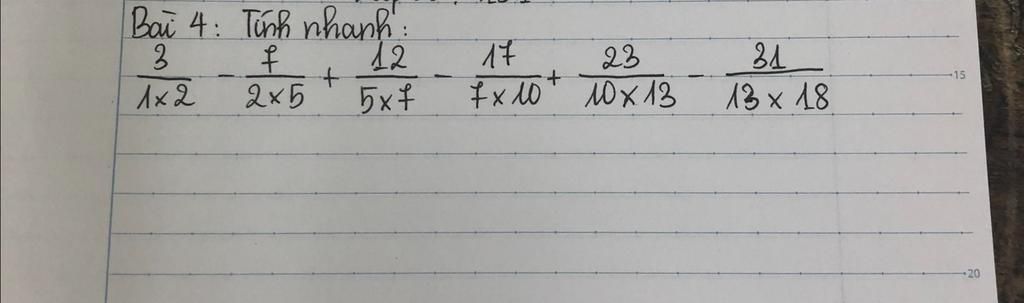 Bài 4: Tính nhanh:
3/1×2 - 7/2×5 + 12/5×7 - 17/7×10 + 23/10×13 - 31/13×18
15
20